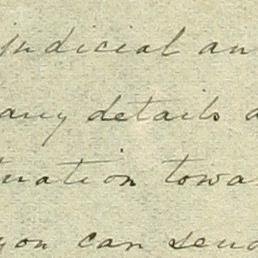 judicial an
any details a
tuation towa
you can send